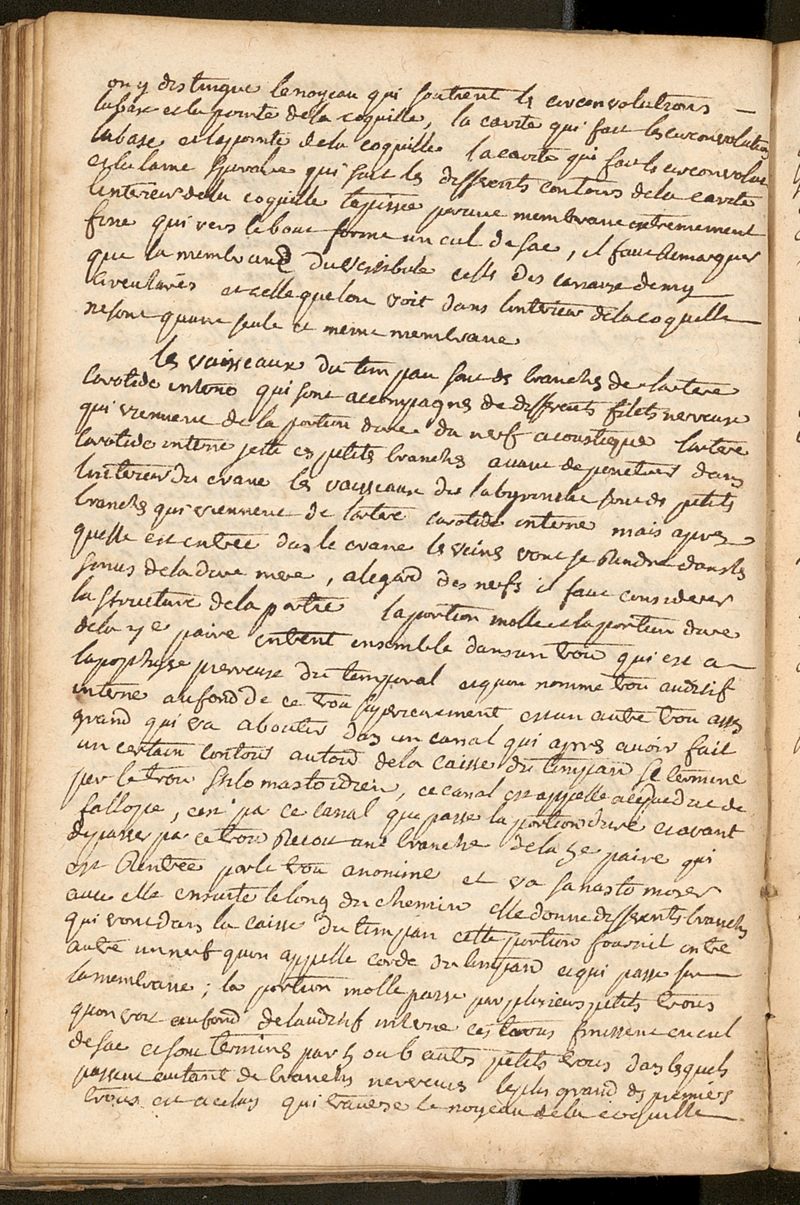 on y distingue le noyeau qui soutient ls circonvolutions
la base et la pointe de la coquille, la cavité qui fait les circonvolutions
la base et la pointe de la coquille la cavité qui fait ls circonvolut
et la lame spirale qui suit les differents contours de la cavite
linterieur de la coquille tapissée par une membrane extremement
fine qui vers le bout forme un cul de sac, il faut remarquer
que la membrane du vestibule celle des canaux demy
circulaires et celle que lon voit dans linterieur de la coquille
ne sont quune seule et meme membrane
les vaisseaux du timpan sont ds branchs de lartere
carotide interne qui sont acompagnes de differents filets nerveux
qui viennent de la portion dure du nerf acoustique lartere
carotide interne jette cs petits branchs avant de penetrer dans
linterieur du crane les vaisseaux du labyrinthe sont ds petits
branchs qui viennent de lartere carotide interne mais apres
quelle est entrée dans le crane ls veins vont se rendre dans ls
sinus de la dure mere, alegard des nerfs il faut considerer
la structure de la partie la portion molle et la portion dure
de la 7e paire entrent ensemble dans un trou qui est a
lapophise pierreuse du temporal et quon nomme trou auditif
interne au fond de ce trou superieurement est un autre trou asses
grand qui va aboutir dans un canal qui apres avoir fait
un certain contour autour de la caisse du timpan se termine
par le trou stilo mastoidien, ce canal est appellé aqueduc de
fallope, cest par ce canal que passe la portion dure et avant
de passer par ce trou recoit une branche de la 5e paire qui
est rentrée par le trou anonime et va sanastomoser
avec elle ensuite le long du chemin elle donne differents branchs
qui vont dans la caisse du timpan cette portion fournit entre
autre un nerf quon appelle corde du timpan et qui passe sur
la membrane; la portion molle passe par plusieurs petits trous
quon voit au fond de lauditif interne cs trous finissent en cul
de sac et sont termins par 5 ou 6 autrs petits trous dans lsquels
passent autant de branchs nerveuses le plus grand ds premiers
trous est a celuy qui traverse le noyeau de la coquille